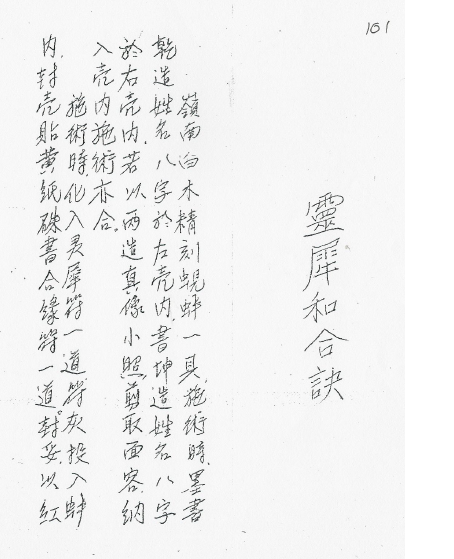 101
靈犀和合訣
嶺南白木精刻蜆蚌一具，施術時，墨書
乾造姓名八字於左壳内，書坤造姓名八字
於右壳内，若以两造真像小照，剪取面容，纳
入壳内施術亦合。
施術時，化入灵犀符一道，符灰投入蚌
内，封壳貼黄紙硃書合缘符一道，封妥，以紅